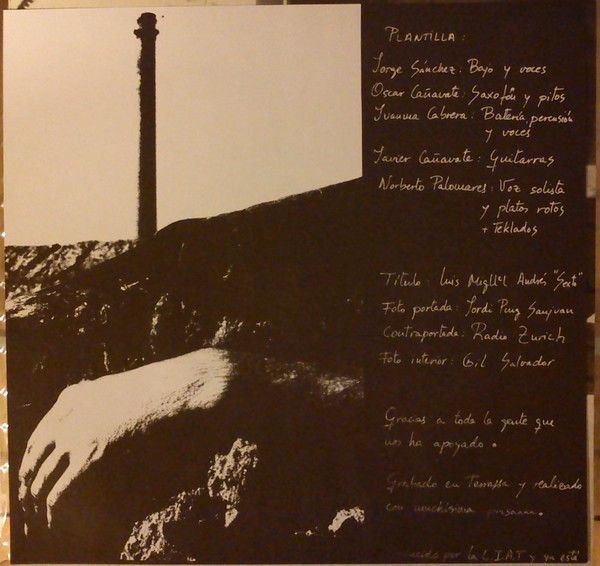 PLANTILLA:
Jorge Sánchez: Bajo y voces
Oscar Cañavate: Saxofón y pitos
Juanma Cabrera: Batería, percusión
y voces
Javier Cañavate: Guitarras
Norberto Palomares: Voz solista
y platos rotos
+ Teklados
Título: Luis Migüel Andrés "Sexto"
Foto portada: Jordi Puig Sanjuan
Contraportada: Radio Zurich
Foto interior: Gil Salvador
Gracias a toda la gente que
nos ha apoyado.
Grabado en Terrassa y realizado
con muchísima
por la L.I.A.T y ya está